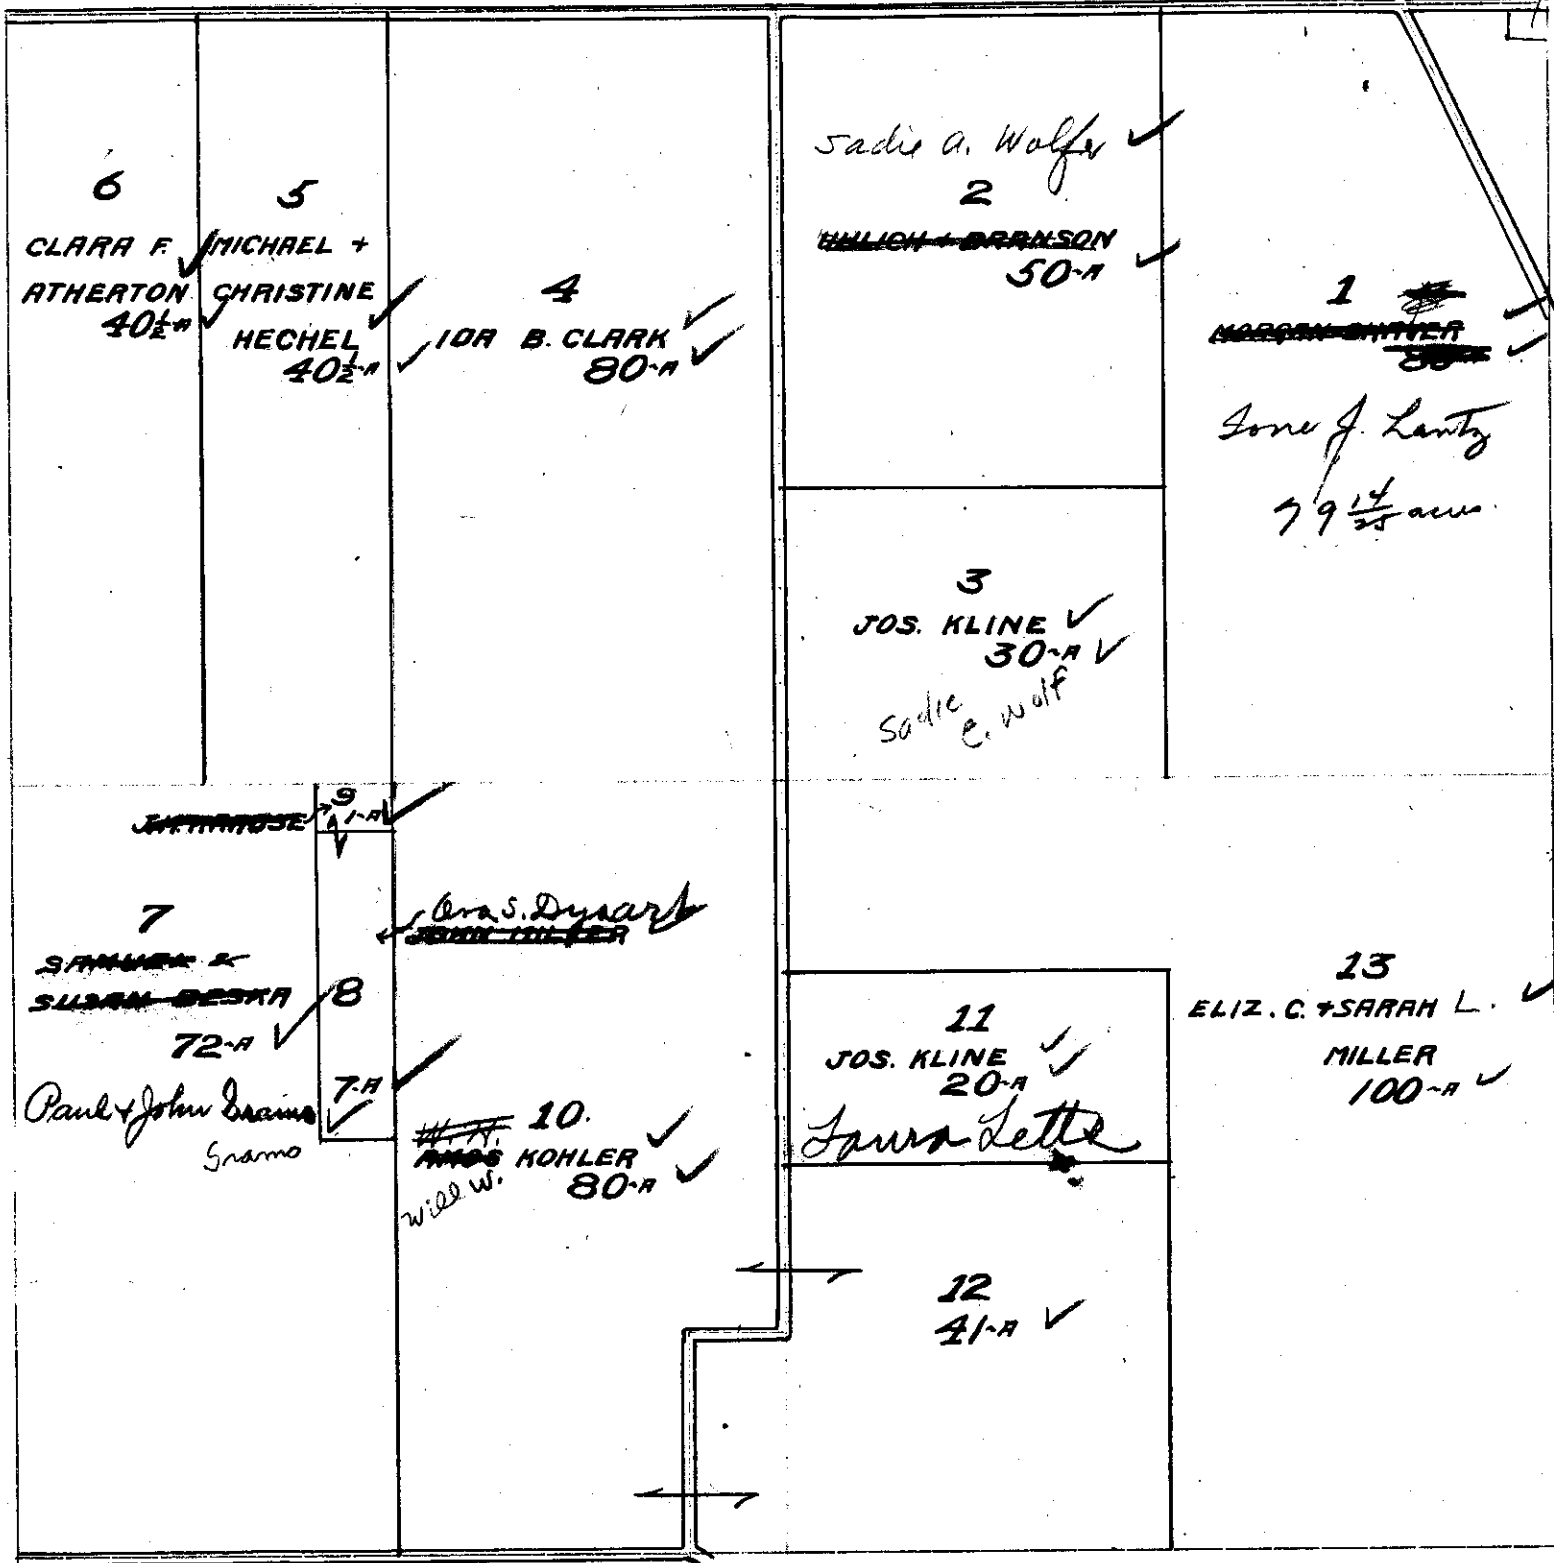 6
CLARA F.
ATHERTON
40½-A
5
MICHAEL +
CHRISTINE
HECHEL
40½-A
4
IDA B. CLARK
80-A
Sadie A. Wolfer
2
UHLICH + BRANSON
50-A
1
MORGAN SHAVER
Ione J. Lantz
79 14/25 acres.
3
JOS. KLINE
30-A
Sadie
E. Wolf
9
1-A
7
SAMUEL &
SUSAN BESKA
72-A
Paul & John
Gramo
Ora S. Dysart
JOHN MILLER
8
7-A
W. H. 10.
AMOS KOHLER
Will W.
80-A
11
JOS. KLINE
20-A
Laura Letts
12
41-A
13
ELIZ. C. + SARAH L.
MILLER
100-A